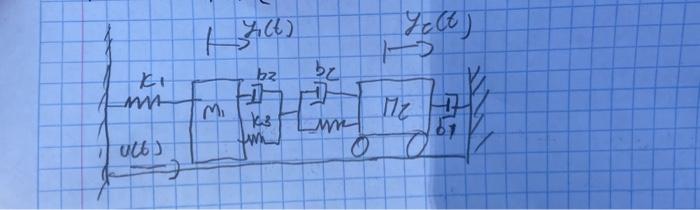 y₁(t)
y₂(t)
K1
b2
b2
M₁
K3
M2
b1
U(t)